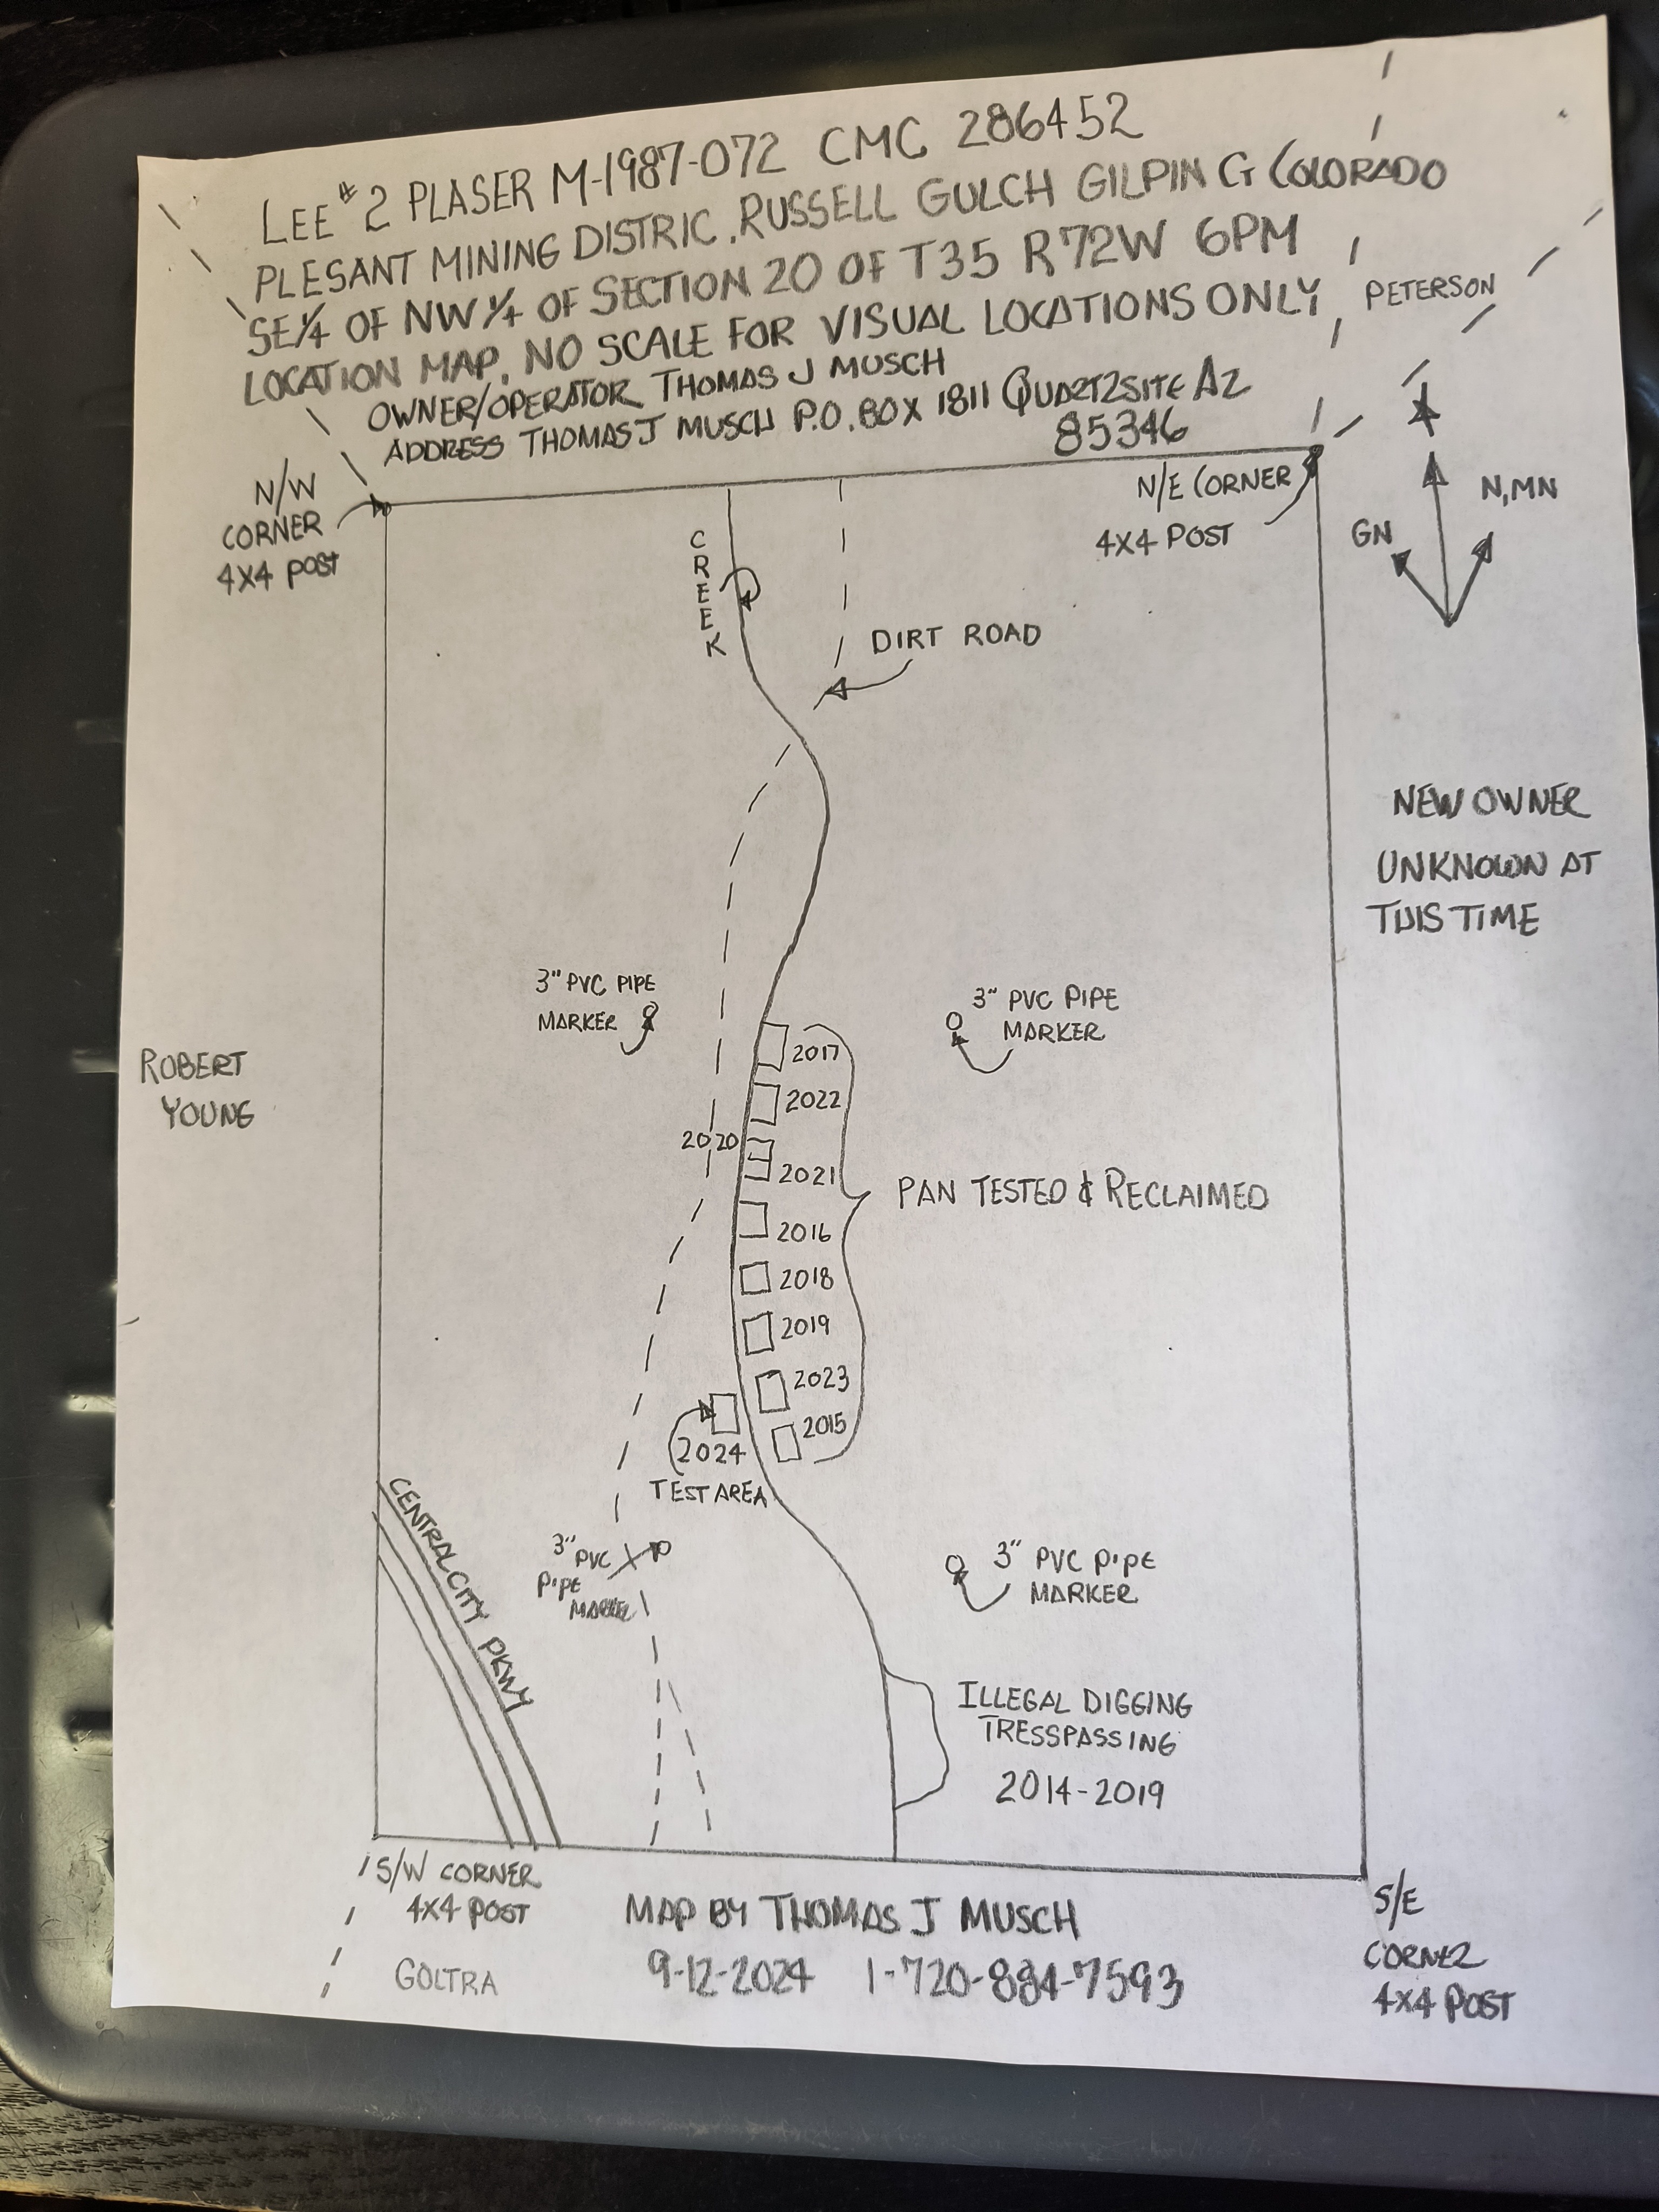 LEE #2 PLASER M-1987-072 CMC 286452
PLESANT MINING DISTRIC. RUSSELL GULCH GILPIN G COLORADO
SE 1/4 OF NW 1/4 OF SECTION 20 OF T35 R72W 6PM
LOCATION MAP. NO SCALE FOR VISUAL LOCATIONS ONLY
PETERSON
OWNER/OPERATOR THOMAS J MUSCH
ADDRESS THOMAS J MUSCH P.O. BOX 1811 QUARTZSITE AZ
85346
N/W
CORNER
4X4 POST
N/E CORNER
4X4 POST
N, MN
GN
CREEK
DIRT ROAD
NEW OWNER
UNKNOWN AT
THIS TIME
3" PVC PIPE
MARKER
3" PVC PIPE
MARKER
ROBERT
YOUNG
2017
2022
2020
2021
PAN TESTED & RECLAIMED
2016
2018
2019
2023
2015
2024
TEST AREA
CENTRAL CITY PKWY
3" PVC
PIPE
MARKER
3" PVC PIPE
MARKER
ILLEGAL DIGGING
TRESSPASSING
2014-2019
S/W CORNER
4X4 POST
GOLTRA
MAP BY THOMAS J MUSCH
9-12-2024 1-720-884-7593
S/E
CORNER
4X4 POST